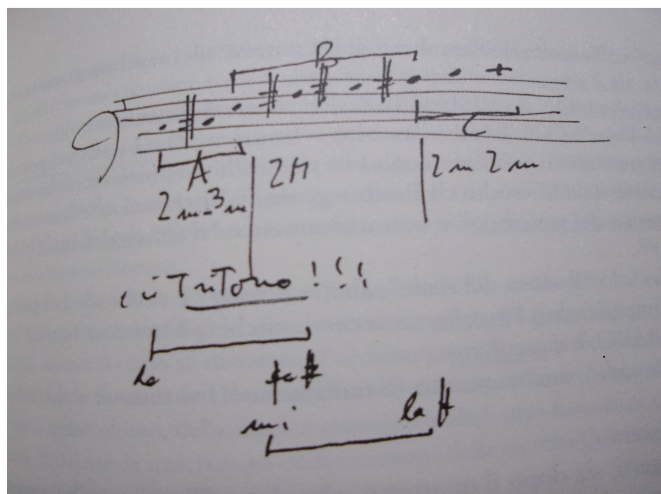 B
A C
2m 3m 2M 2m 2m
Tritono!!!
do fa#
mi la#